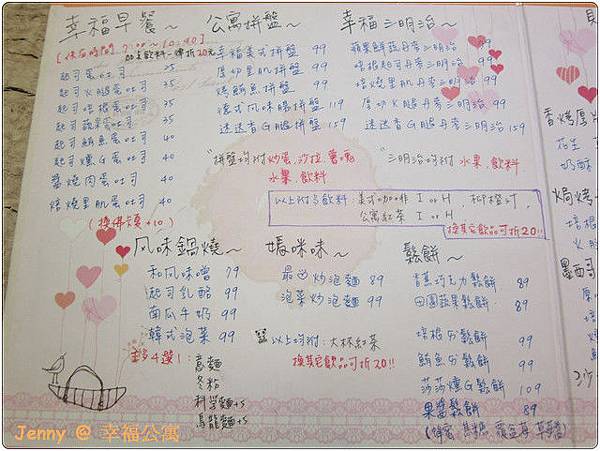 幸福早餐～
起司蛋吐司 25
起司火腿蛋吐司 35
起司培根蛋吐司 35
起司蔬菜蛋吐司 35
起司鮪魚蛋吐司 40
起司燻G蛋吐司 40
醬燒肉蛋吐司 40
焙燒里肌蛋吐司 40
公寓拼盤～
幸福美式拼盤 99
厚切里肌拼盤 99
烤鮪魚拼盤 99
德式風味腸拼盤 119
迷迭香G腿拼盤 159
"拼盤均附炒蛋.沙拉.薯塊
水果.飲料
幸福三明治～
蘋果鮮蔬丹麥三明治 99
培根起司丹麥三明治 99
焙燒里肌丹麥三明治 99
厚切火腿丹麥三明治 99
迷迭香G腿丹麥三明治 159
"三明治均附水果.飲料
以上附餐飲料：美式咖啡 I or H . 柳橙汁.
公寓紅茶 I or H
換其它飲品可折20!!
风味鍋燒～
和风味噌 99
起司乳酪 99
南瓜牛奶 99
韓式泡菜 99
意麵
冬粉
科學麵+5
烏龍麵+5
媽咪味～
炒泡麵 89
泡菜炒泡麵 99
以上均附：大杯紅茶
換其它飲品可折20!!
鬆餅～
香蕉巧克力鬆餅 89
田園蔬果鬆餅 89
培根仔鬆餅 99
鮪魚仔鬆餅 99
莎莎燻G鬆餅 109
果醬鬆餅 89
香燻厚片
花生
奶酥
焗烤
培根
墨西哥
Jenny @ 幸福公寓